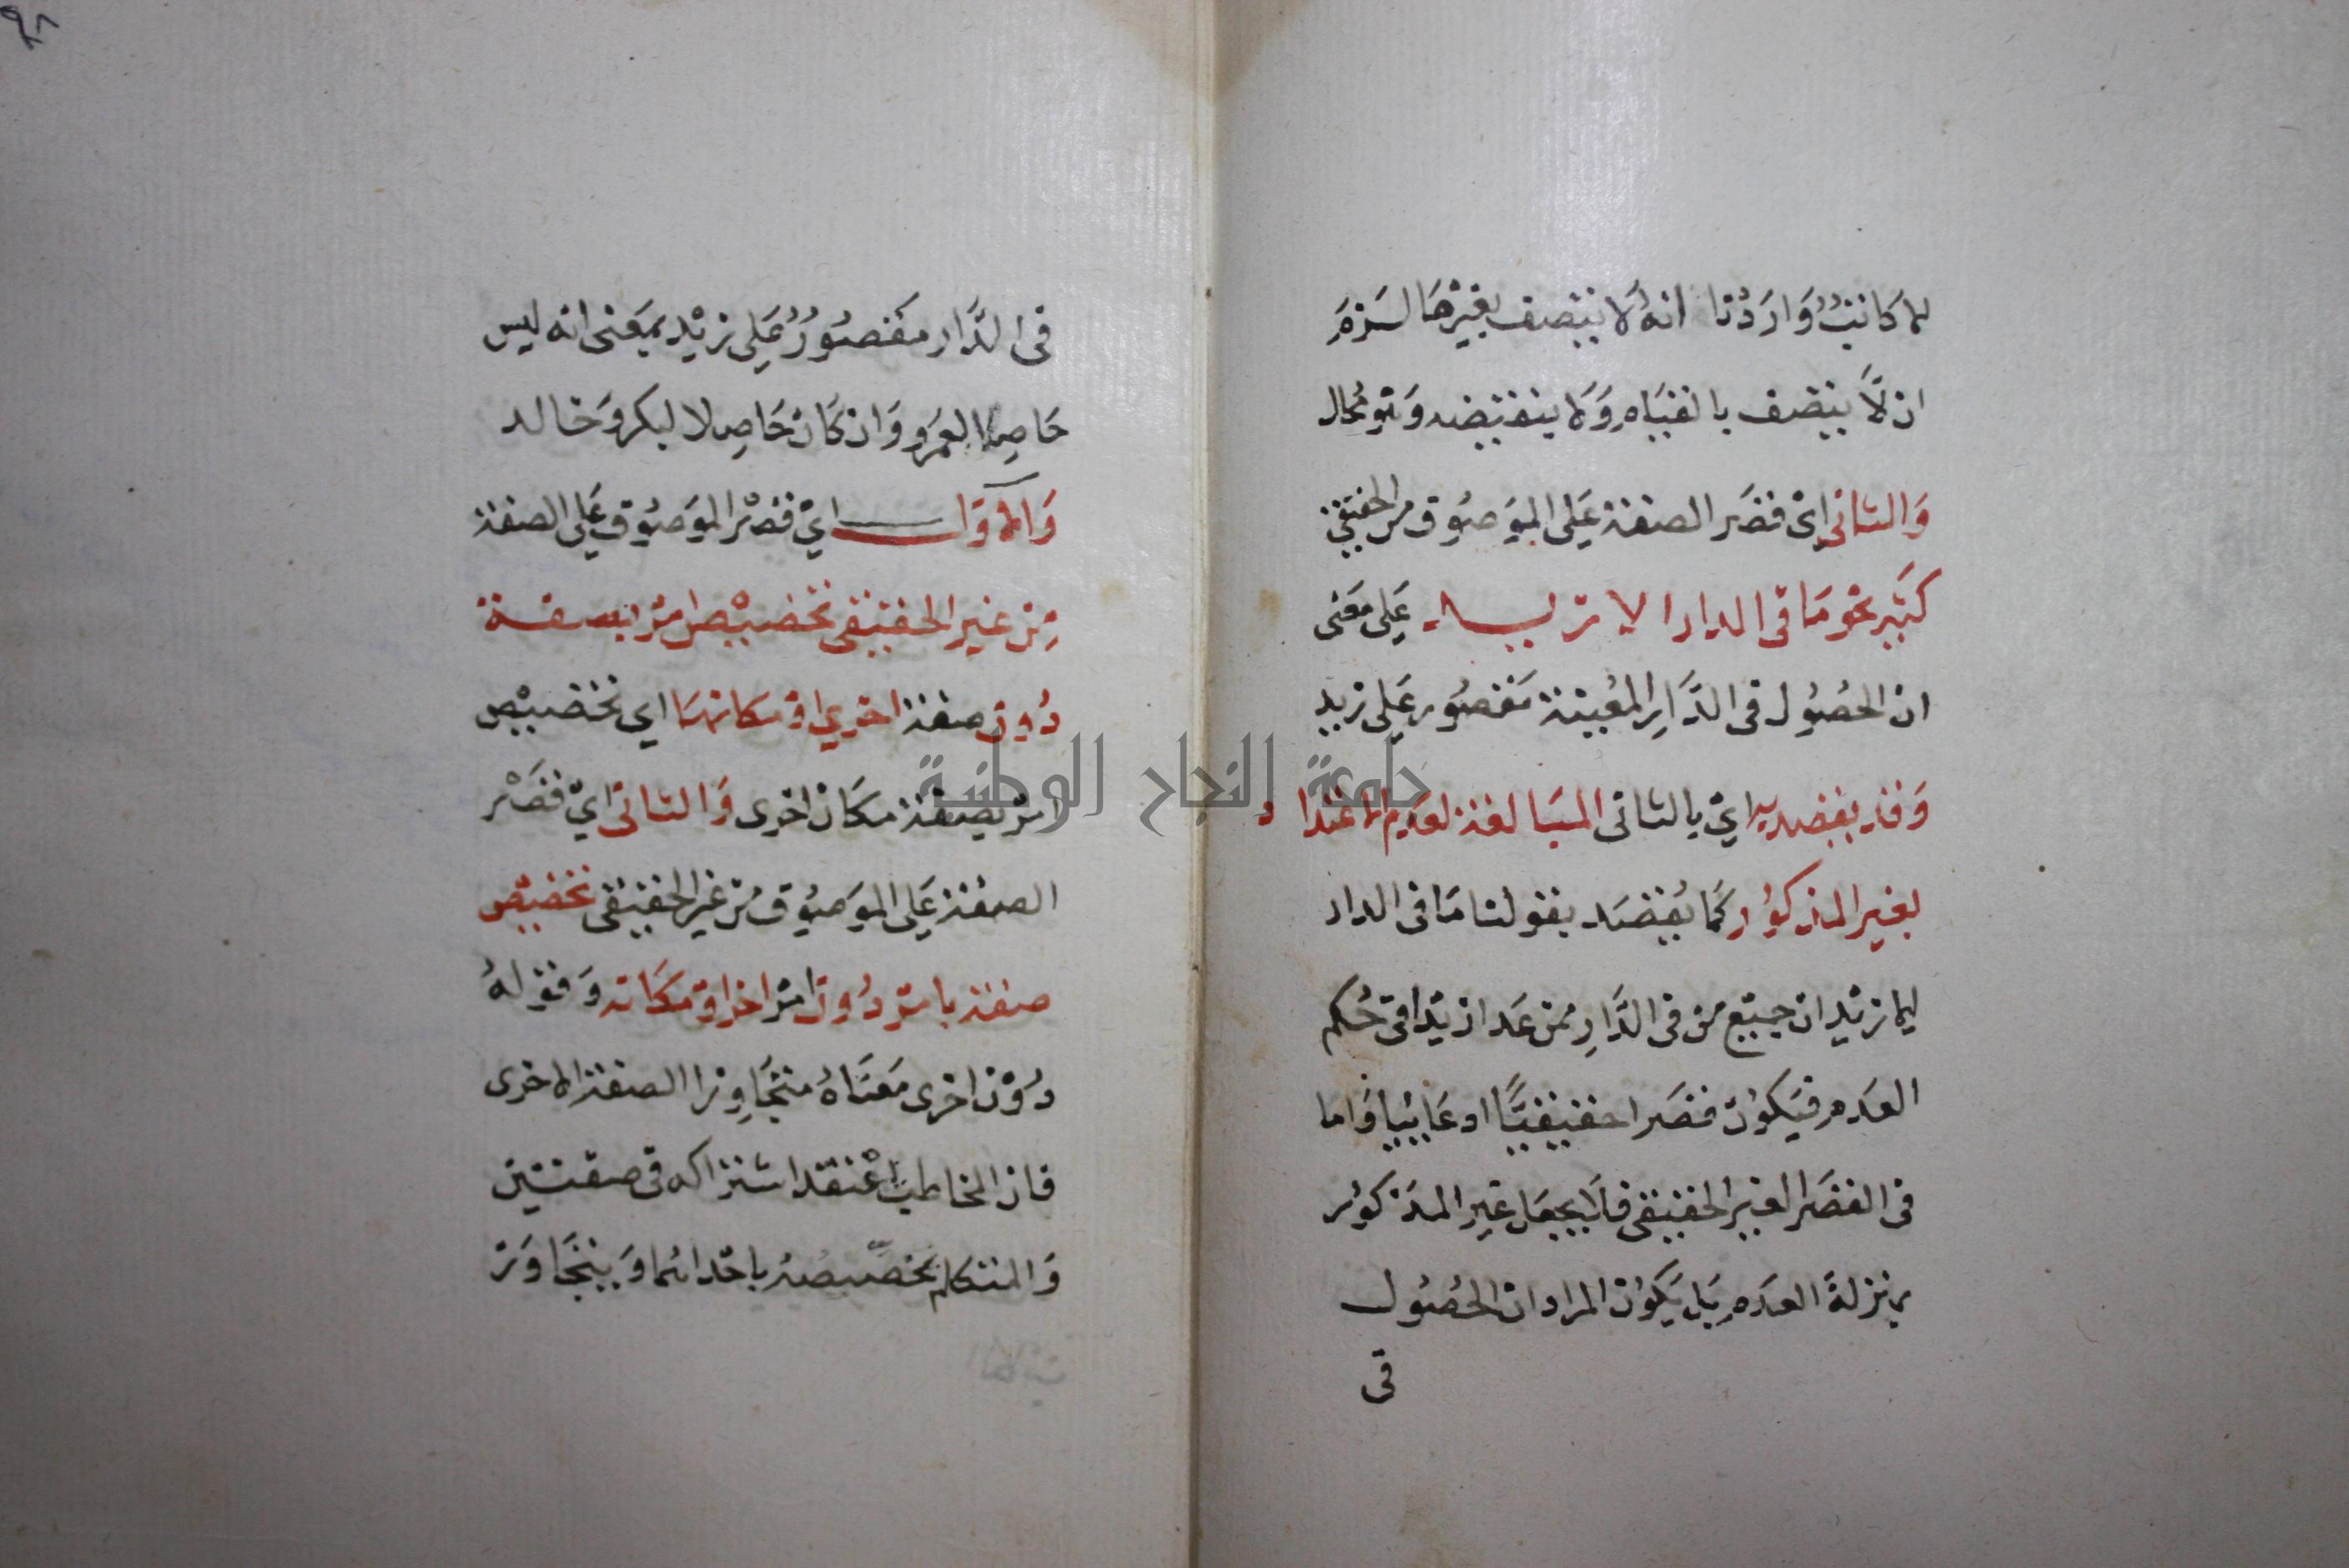 لما كانت واردنا انه لا يتصف بغيرها لزم
ان لا يتصف بالقيام ولا بنقيضه وهو محال
والثاني اي قصر الصفة على الموصوف من الحقيقي
كثير نحو ما في الدار الا زيد على معنى
ان الحصول في الدار المعينة مقصور على زيد
وقد يقصد به اي بالثاني المبالغة لعدم الاعتداد
بغير المذكور كما يقصد بقولنا ما في الدار
الا زيد ان جميع من في الدار ممن عدا زيدا في حكم
العدم فيكون قصرا حقيقيا ادعائيا واما
في القصر الغير الحقيقي فلا يجعل غير المذكور
بمنزلة العدم بل يكون المراد ان الحصول
في
٩٨
في الدار مقصور على زيد بمعنى انه ليس
حاصلا لعمرو وان كان حاصلا لبكر وخالد
والاول اي قصر الموصوف على الصفة
من غير الحقيقي تخصيص امر بصفة
دون صفة اخرى او مكانها اي تخصيص
امر بصفة مكان اخرى والثاني اي قصر
الصفة على الموصوف من غير الحقيقي تخصيص
صفة بامر دون امر اخر او مكانه وقوله
دون اخرى معناه متجاوزا الصفة الاخرى
فان المخاطب اعتقد اشتراكه في صفتين
والمتكلم يخصصه باحداهما ويتجاوز
جامعة النجاح الوطنية